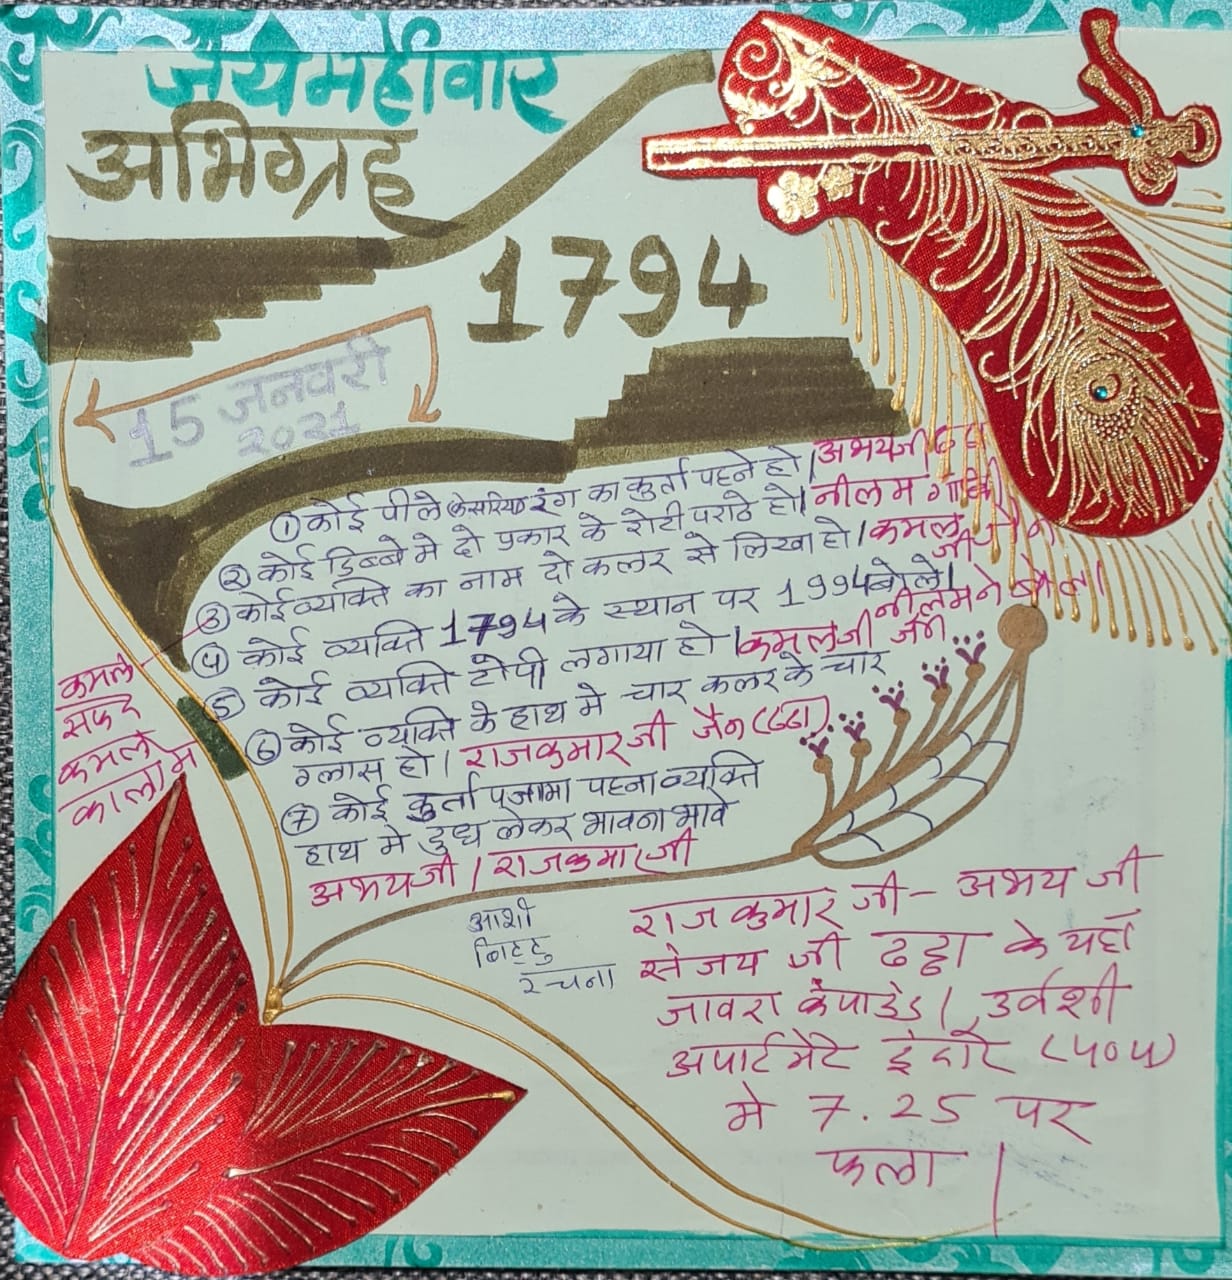 जय महावीर
अभिग्रह
1794
15 जनवरी
2021
① कोई पीले केसरिया रंग का कुर्ता पहने हो। अभयजी ढढा
② कोई डिब्बे मे दो प्रकार के रोटी पराठे हो। नीलम
③ कोई व्यक्ति का नाम दो कलर से लिखा हो। कमल जी जैन
④ कोई व्यक्ति 1794 के स्थान पर 1994 बोले। नीलम ने बोला।
⑤ कोई व्यक्ति टोपी लगाया हो। कमलजी जैन
⑥ कोई व्यक्ति के हाथ मे चार कलर के चार
ग्लास हो। राजकुमार जी जैन (ढढा)
⑦ कोई कुर्ता पजामा पहना व्यक्ति
हाथ मे दुध लेकर भावना भावे
अभयजी / राजकुमारजी
कमल
सफेद
कमल
काला मे
आशी
बिट्टु
रचना
राजकुमार जी - अभय जी
संजय जी ढढ्ढा के यहाँ
जावरा कंपाउंड।, उर्वशी
अपार्टमेंट इंदौर (५०५)
मे 7.25 पर
फला।